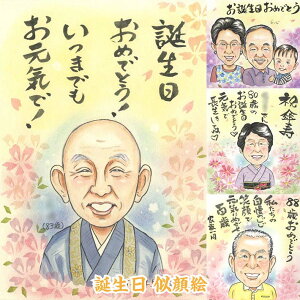 誕生日
おめでとう!
いつまでも
お元気で!
(83歳)
お誕生日おめでとう
傘寿
80歳の
お誕生日
おめでとう
元気で
長生きしてね
88歳おめでとう
私たちの
自慢の
笑顔で
元気
百歳
家族一同
誕生日 似顔絵